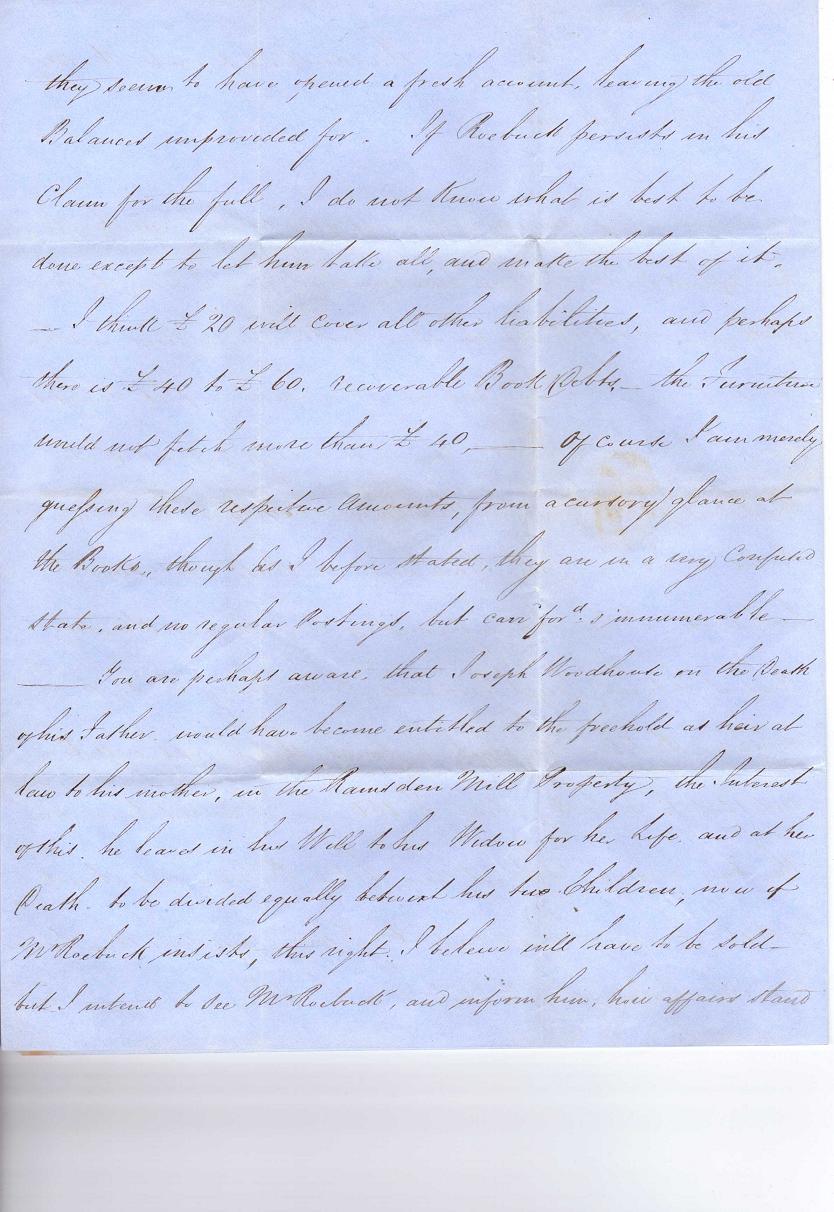 they seem to have opened a fresh account, leaving the old
Balances unprovided for. If Roebuck persists in his
Claim for the full, I do not Know what is best to be
done except to let him take all, and make the best of it.
— I think £20 will cover all other liabilities, and perhaps
there is £40 to £60. recoverable Book Debts — the Furniture
would not fetch more than £40, — of course I am merely
guessing these respective Amounts, from a cursory glance at
the Books, though as I before stated, they are in a very Confused
state, and no regular Postings, but carr^d for^d.s innumerable —
— You are perhaps aware, that Joseph Woodhouse on the Death
of his Father would have become entitled to the freehold as heir at
law to his mother, in the Ramsden Mill Property, the Interest
of this he leaves in his Will to his Widow for her Life and at her
Death to be divided equally betwixt his two Children, now if
Mr Roebuck insists, this right I believe will have to be sold —
but I intend to see Mr Roebuck, and inform him, how affairs stand